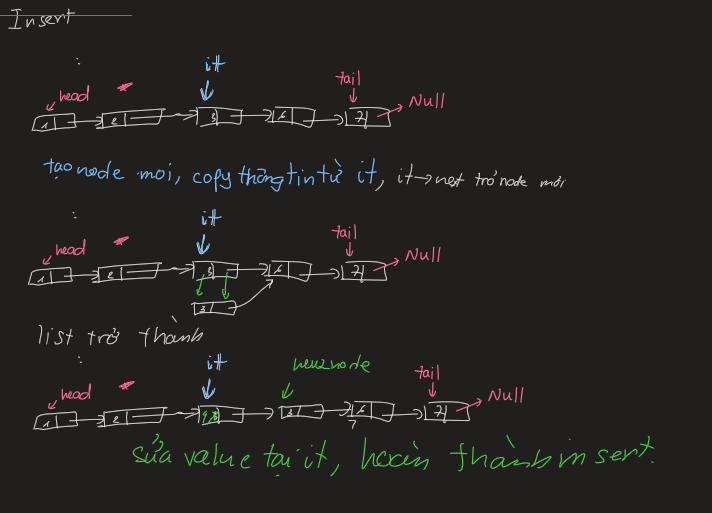 Insert
it
tail
head
Null
1 2 3 6 7
tạo node moi, copy thông tin từ it, it→next trỏ node mới
it
tail
head
Null
1 2 3 6 7
3
list trở thành
it
new node
tail
head
Null
1 2 3 6 7
sửa value tại it, hoàn thành insert.